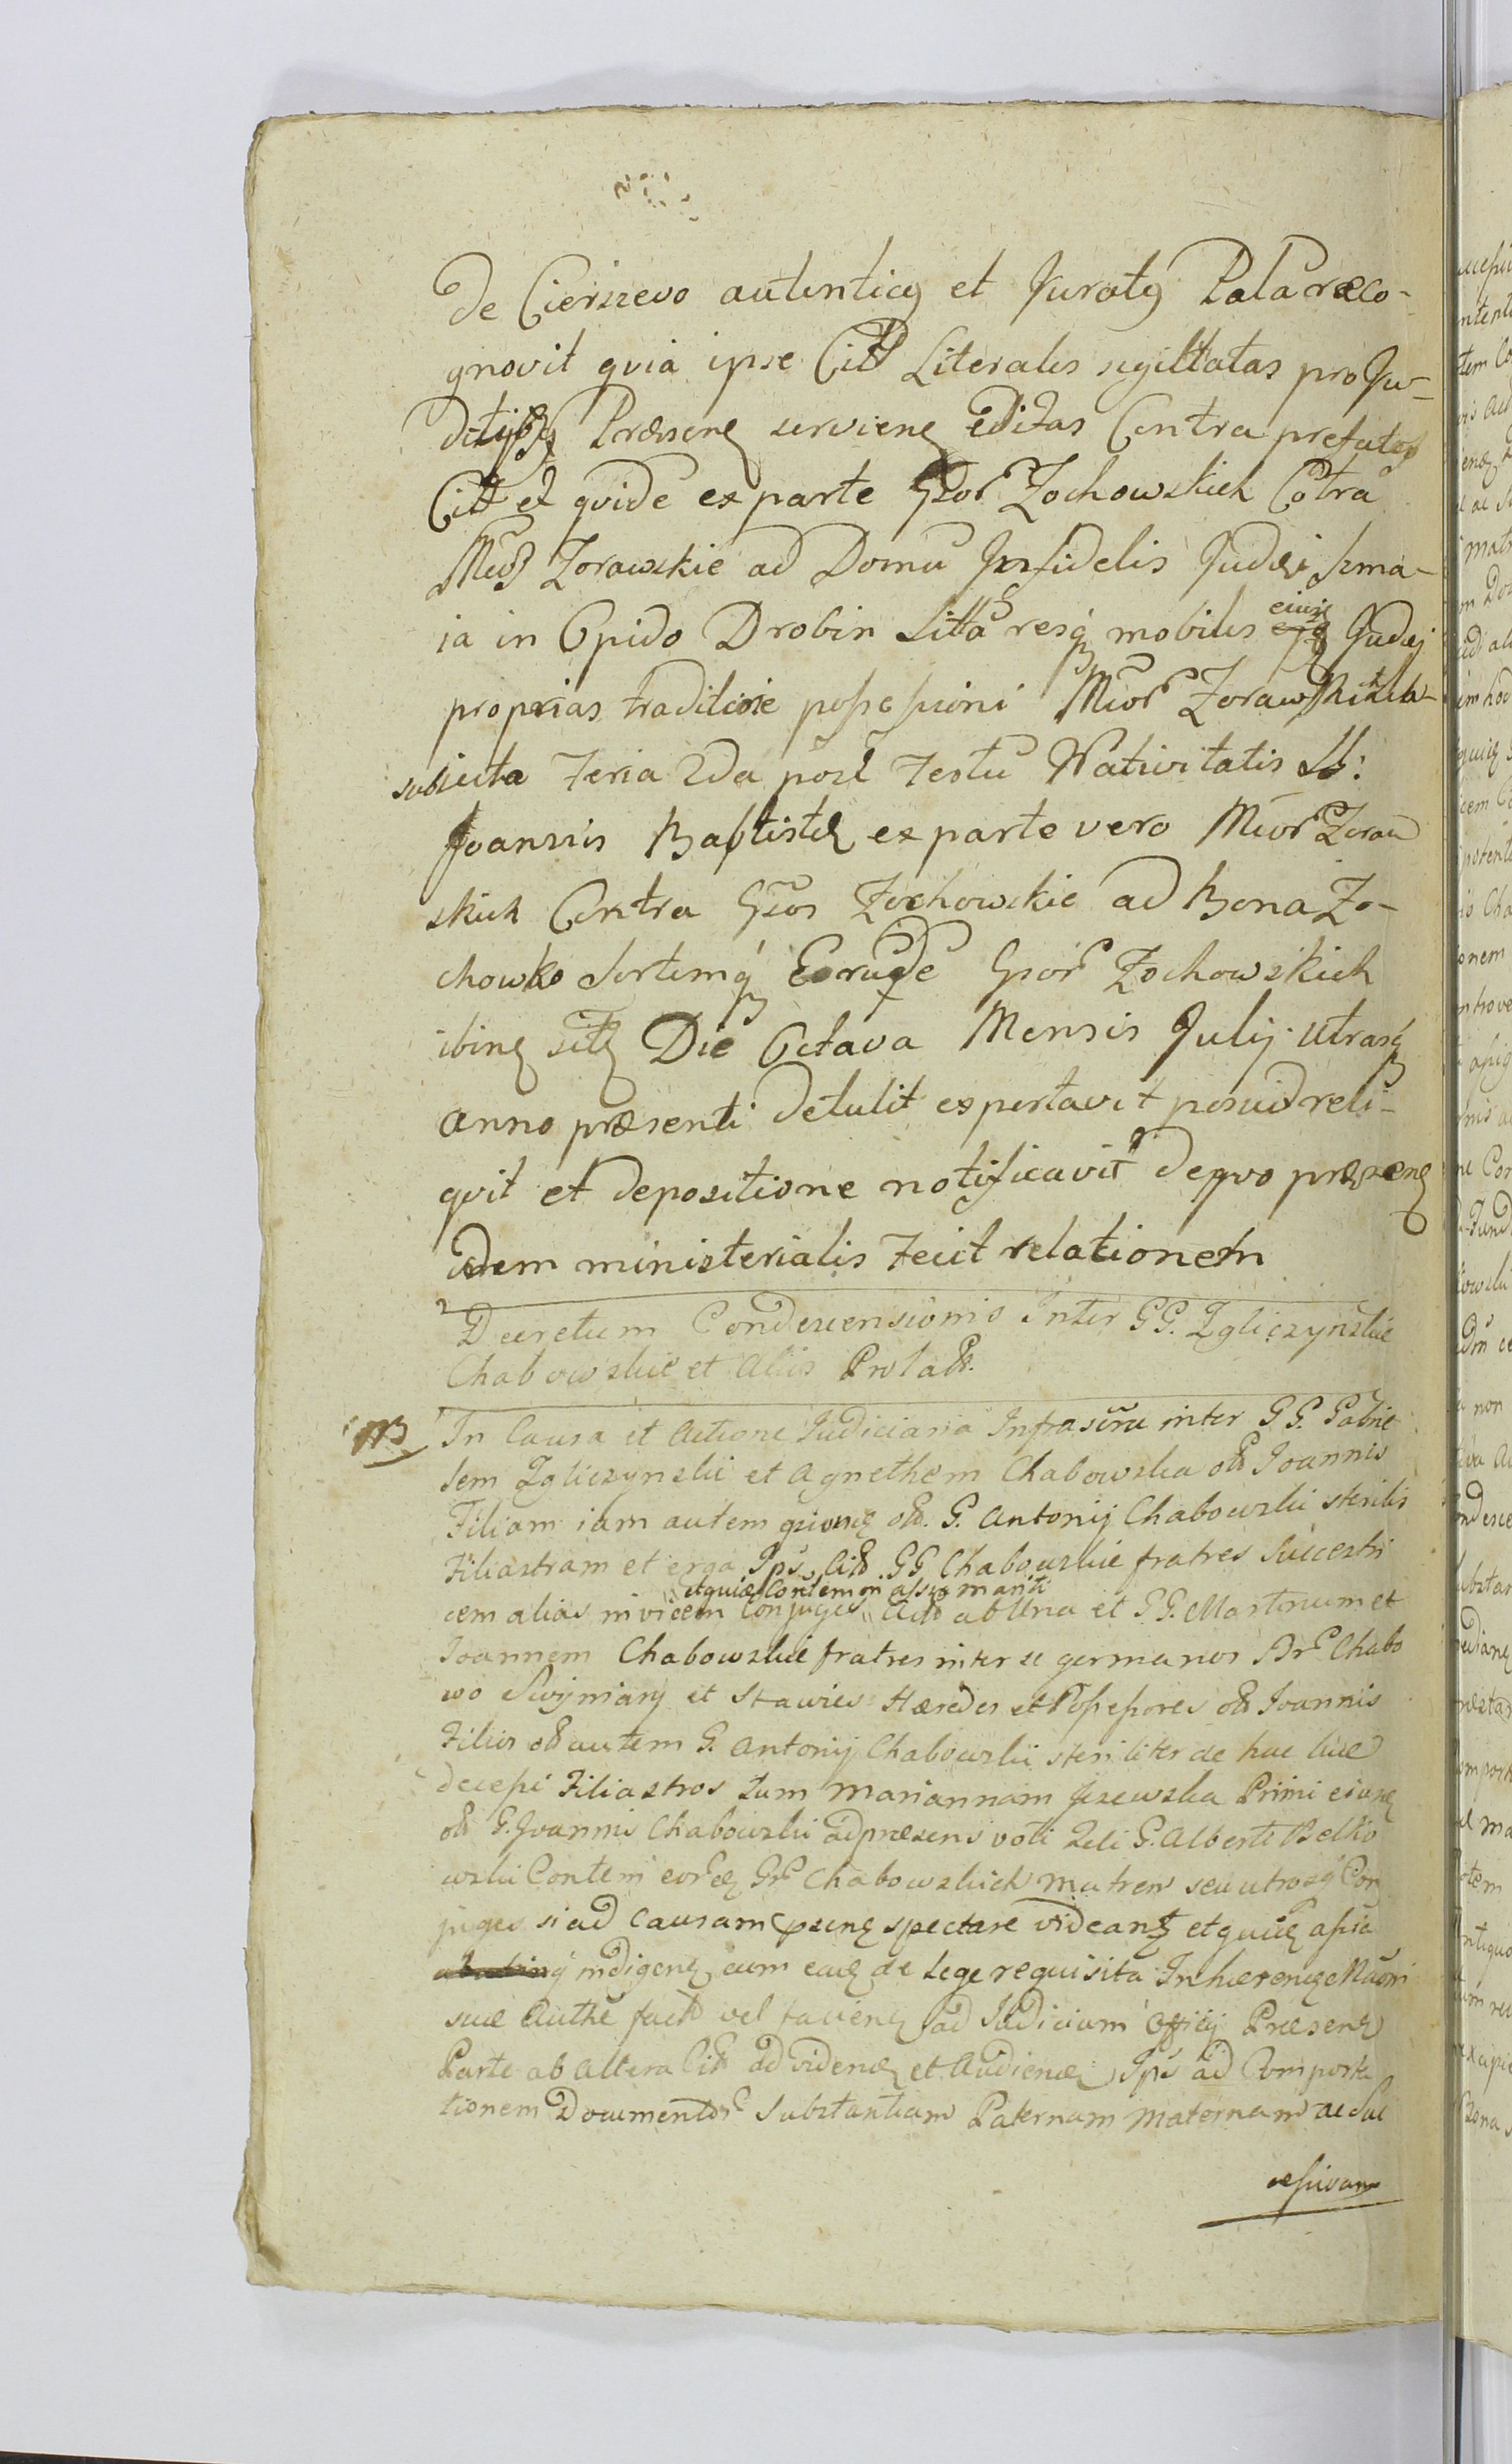 de Cierszewo autenticq et Juratq Pala reco-
gnovit qvia ipse Citt Literales sigillatas pro Ju-
dicijs Præsenę servienę Editas Contra prefatos
Citt et qvide ex parte Gsor Zochowskich Cotra
Mcos Zorawskie ad Domu Infidelis Judæi Szma-
ia in Opido Drobin Sitta resq mobiles eiusę Judæj
proprias traditioie possessioni Mcor Zorawskich
subiecta Feria 2da post Festu Nativitatis S:
Joannis Baptistæ ex parte vero Mcor Zoraw
skich Contra Gsos Zochowskie ad Bona Zo-
chowko Sortemq Eorude Gsor Zochowskich
ibinę sitę Die Octava Mensis Julij utrasq
anno præsenti detulit exportavit posuit reli-
qvit et depositione notificavit deqvo præsenę
idem ministerialis Fecit relationem
Decretum Condescensionis Inter GG. Zgliczynskie
Chabowskie et Aliis Prolat.
In Causa et Actione Judiciaria Infrascrū inter GG. Gabrie
lem Zgliczynski et Agnethem Chabowska olt Joannis
Filiam iam autem olt. G. Antonij Chabowski sterilis
Filiastram et erga Ips Citt GG Chabowskie fratres Succestri
et quiaę Contem on assis mariti
cem alias invicem Conjuges Act ab Una et GG. Martinum et
Joannem Chabowskie fratres inter se germanos Br Chabo
wo Swiniary et Stawies Hæredes et Possessores olt Joannis
Filios olt autem G. Antonij Chabowski steriliter de hac luce
decessi Filiastros tum Mariannam Jezewska Primi eiusę
olt G. Joannis Chabowski ad præsens voti 2di G. Alberti Belko
wski Contem eorę Gr Chabowskich Matrem seu utrosq Con
juges si ad Causam psenę spectare videant et quiię assia
indigenę cum eaię de Lege requisita Inhærenę
suæ Authe fact vel facienę ad Judicium Officij Præsenę
Parte ab altera Citt ad videnę et Audienę Ips ad Comporta
tionem Documentor Substantiam Paternam Maternam ac Suc
cessivam